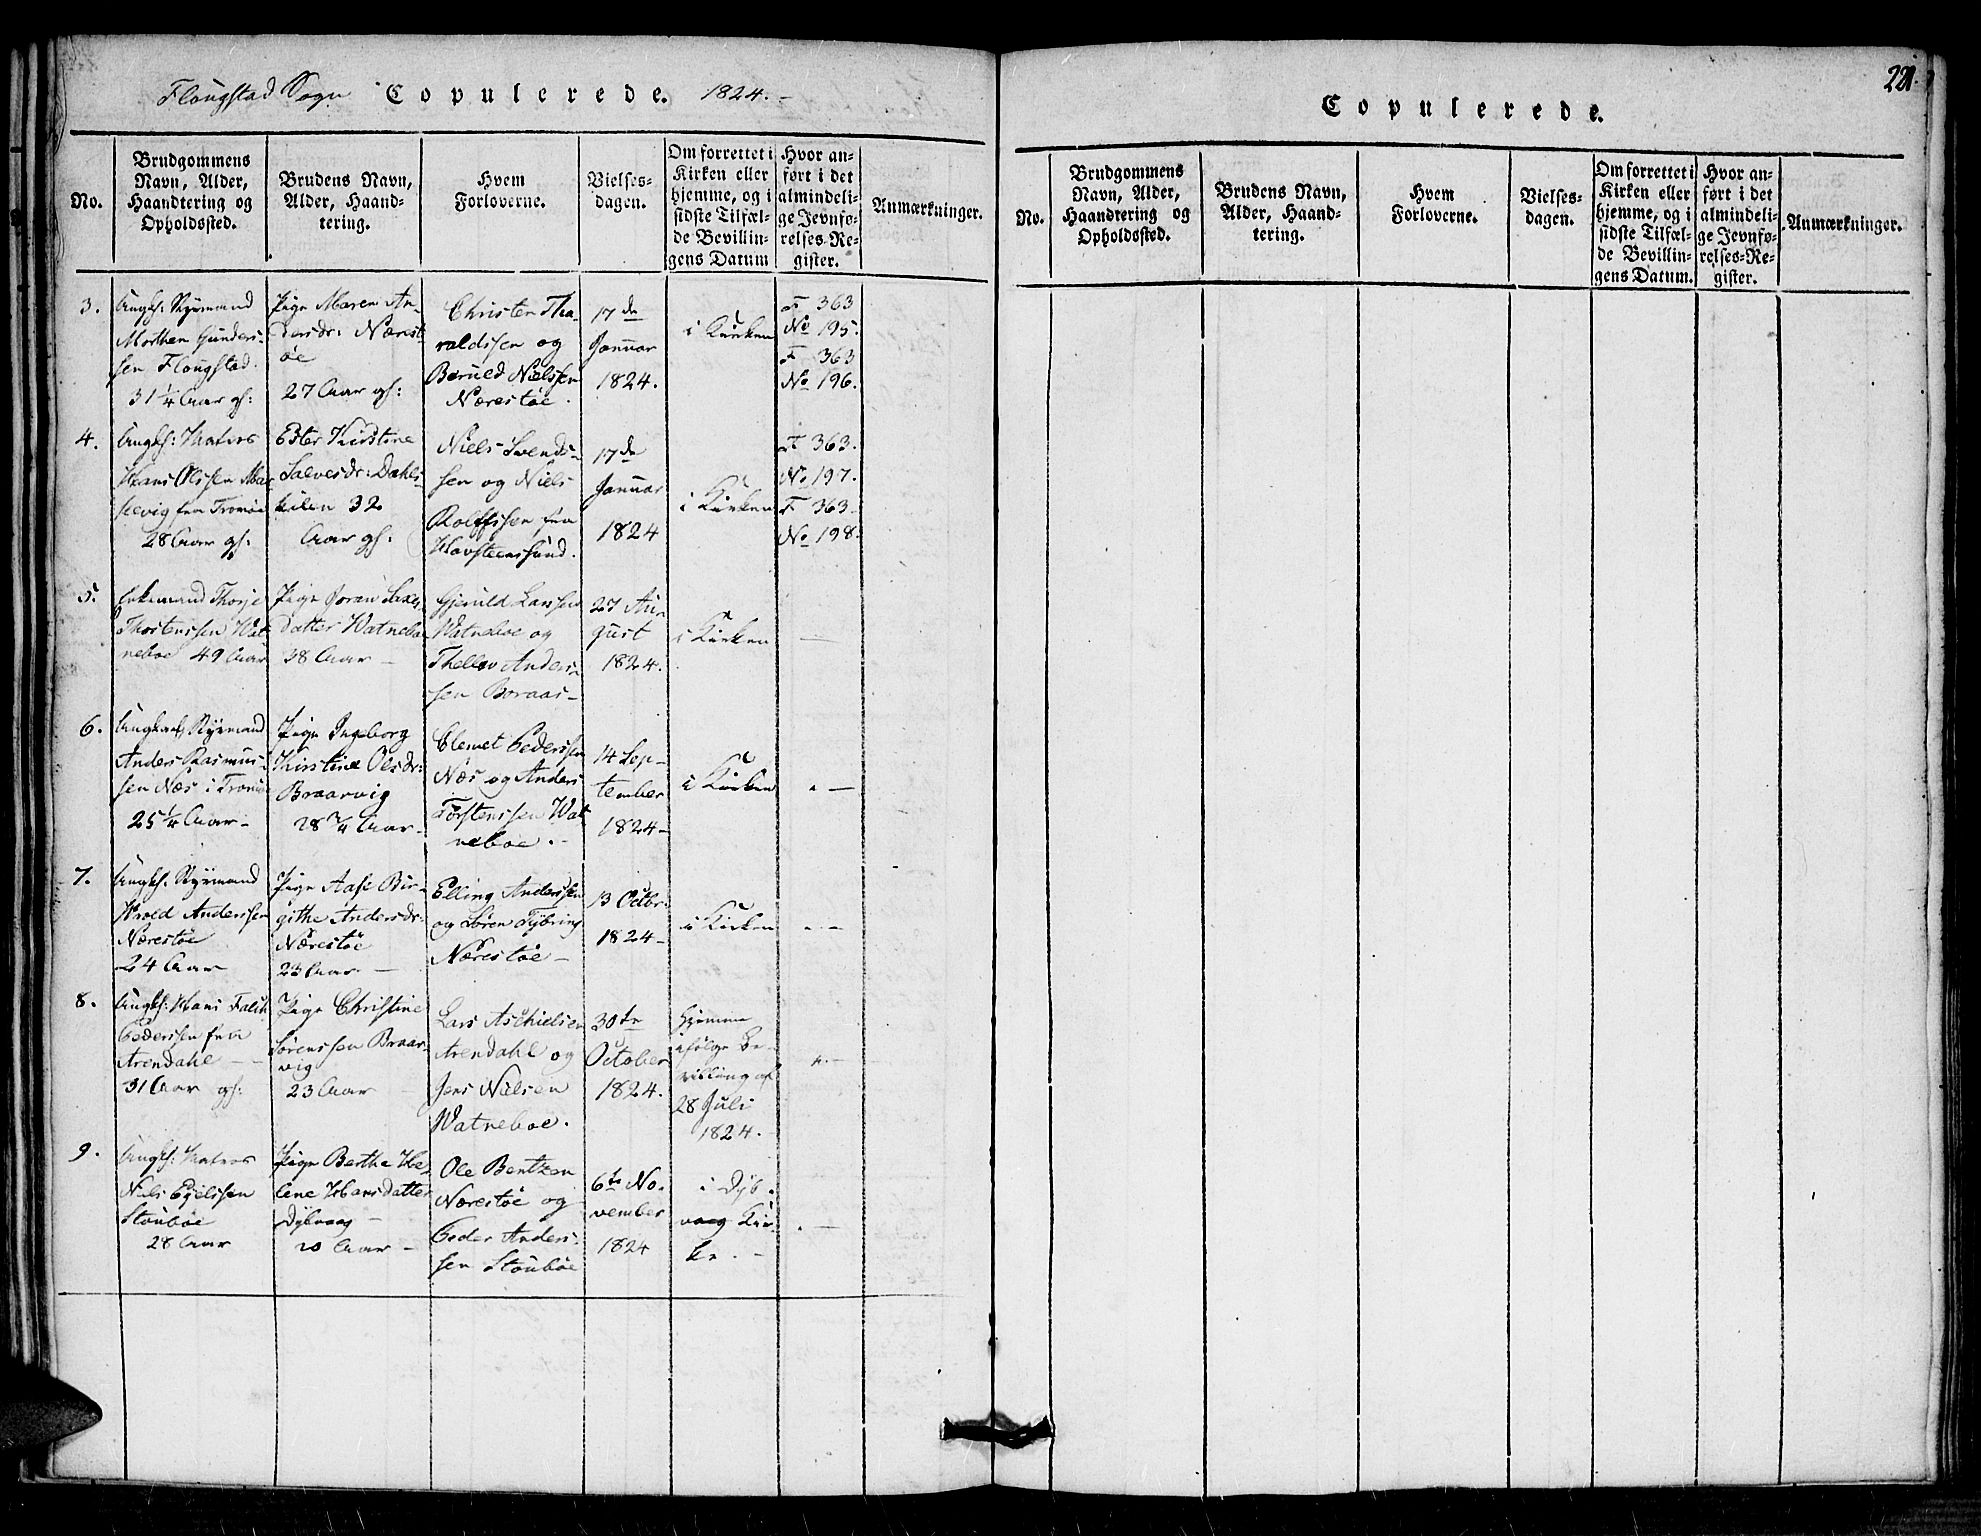 Flougstad Sogn Copulerede. 1824.-
No.
Brudgommens
Navn, Alder,
Haandtering og
Opholdssted.
Brudens Navn,
Alder, Haand-
tering.
Hvem
Forloverne.
Vielses-
dagen.
Om forrettet i
Kirken eller
hjemme, og i
sidste Tilfæl-
de Bevillin-
gens Datum
Hvor an-
ført i det
almindeli-
ge Jevnfø-
relses-Re-
gister.
Anmærkninger.
3.
Ungk: Styrmand
Morthen Gunders-
sen Flougstad.
31 1/4 Aar gl:
Pige Maren An-
dersdr: Nærest-
øe
27 Aar gl:
Christen Tha-
raldssen og
Beruld Nielssen
Nærestøe.
17de
Januar
1824.
i Kirken
F 363
No 195.
F 363
No 196.
4.
Ungk: Matros
Hans Olssen Mar-
sevig fra Tromøe
28 Aar gl:
Ester Kirstine
Salvesdr: Dahls-
kilen 32
Aar gl:
Niels Svends-
sen og Niels
Rolffssen fra
Havsteensund.
17de
Januar
1824
i Kirken
F 363.
No 197.
F 363.
No 198.
5.
Enkemand Thorje
Thostenssen Wat-
neboe 49 Aar
Pige Joran
Datter Watneboe
38 Aar -
Gjeruld Larssen
Watneboe og
Thellov Anders-
sen Boraas-
27 Au-
gust
1824.
i Kirken
-
6.
Ungkarl Styrmand
Anders Rasmus-
sen Næs i Tromøe
25 1/4 Aar-
Pige Ingeborg
Kirstine Olsdr:
Braarvig
28 3/4 Aar-
Clemet Pederssen
Næs og Anders
Torstenssen Wat-
neboe.-
14 Sep-
tember
1824-
i Kirken
-
7.
Ungk. Styrmand
Harold Anderssen
Nærestøe
24 Aar
Pige Aase Bir-
githe Andersdr:
Nærestøe
23 Aar. -
Elling Anderssen
og Søren Fybring
Nærestøe-
13 Octbr.
1824-
i Kirken
-
8.
Ungk: Hans Falck
Pederssen fra
Arendahl -
31 Aar gl:
Pige Christine
Sørenssen Braar-
vig
23 Aar -
Lars Aschielsen
Arendahl og
Jens Nielsen
Watneboe.
30te
October
1824.
Hjemme
ifølge Be-
villing af
28 Juli
1824.-
-
9.
Ungk: Matros
Niels Egelssen
Stoubøe
28 Aar
Pige Berthe He-
lene Hansdatter
Dybvaag -
20 Aar -
Ole Bentzen
Nærestøe og
Peder Anders-
sen Stoubøe
6te No-
vember
1824
i Dyb-
vaag Kir-
ke.-
-
221.
Copulerede.
No.
Brudgommens
Navn, Alder,
Haandtering og
Opholdssted.
Brudens Navn,
Alder, Haand-
tering.
Hvem
Forloverne.
Vielses-
dagen.
Om forrettet i
Kirken eller
hjemme, og i
sidste Tilfæl-
de Bevillin-
gens Datum.
Hvor an-
ført i det
almindeli-
ge Jevnfø-
relses-Re-
gister.
Anmærkninger.